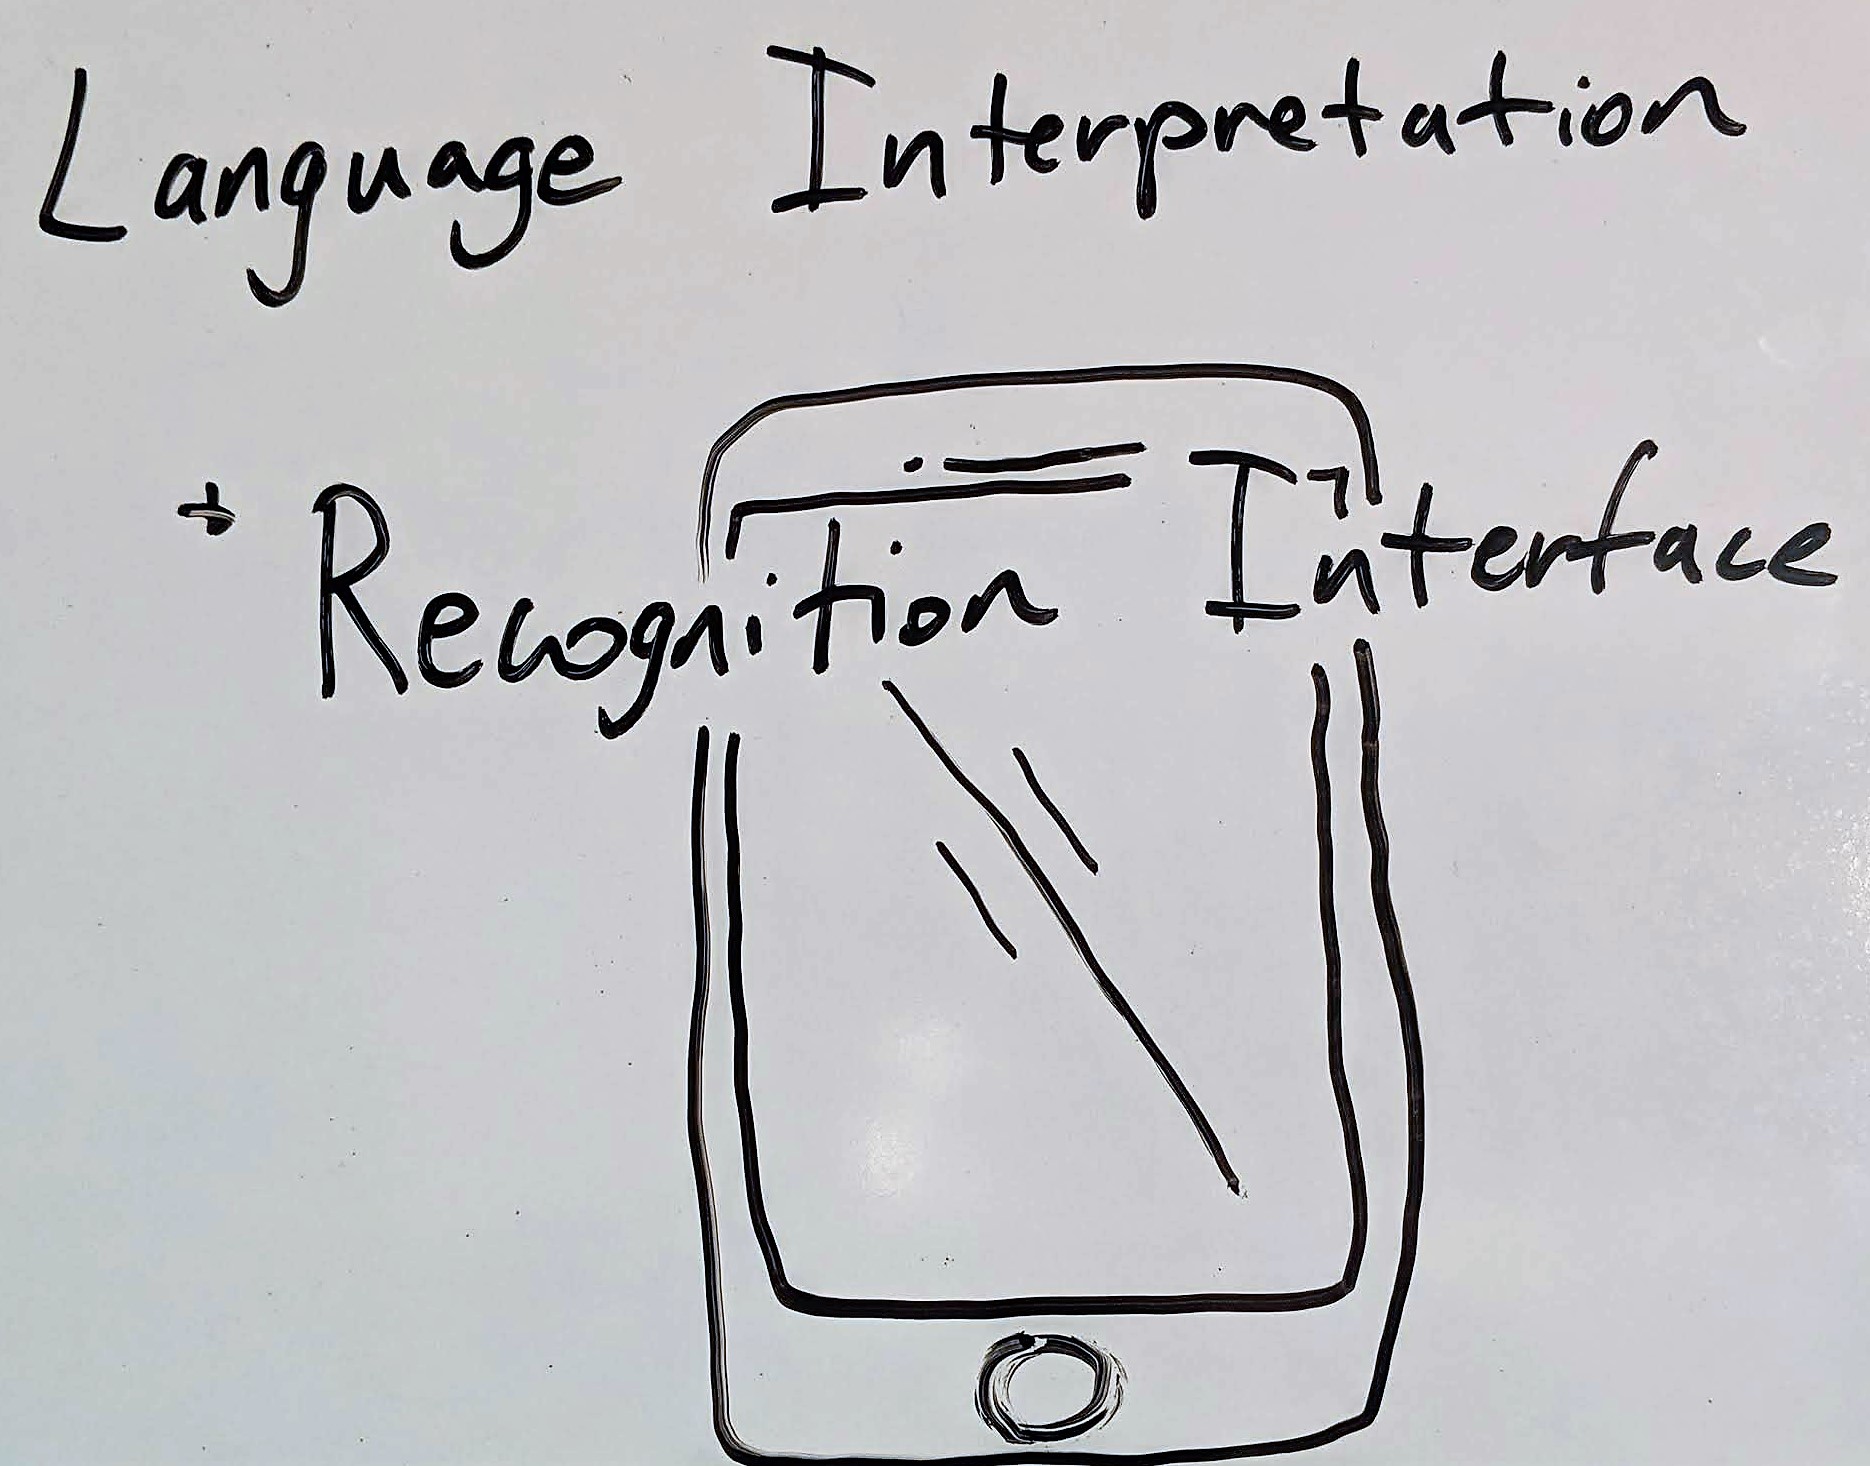 Language Interpretation
+ Recognition Interface